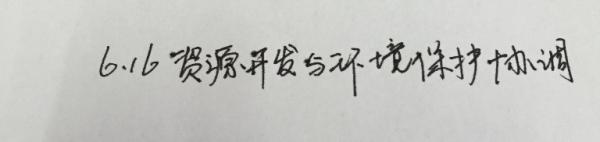 6.16资源开发与环境保护协调